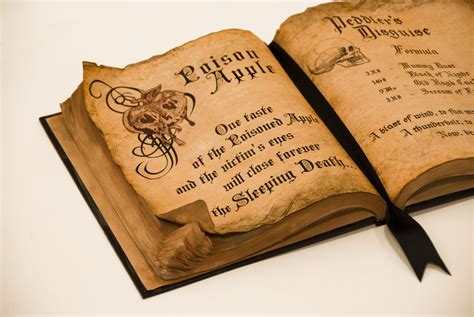 Poison
Apple
One taste
of the Poisoned Apple
and the victim's eyes
will close forever
the Sleeping Death...
Peddler's
Disguise
Formula
Mummy Dust
Black of Night
Old Hag's
Scream of
A blast of wind, to fan
A thunderbolt, to
Now,